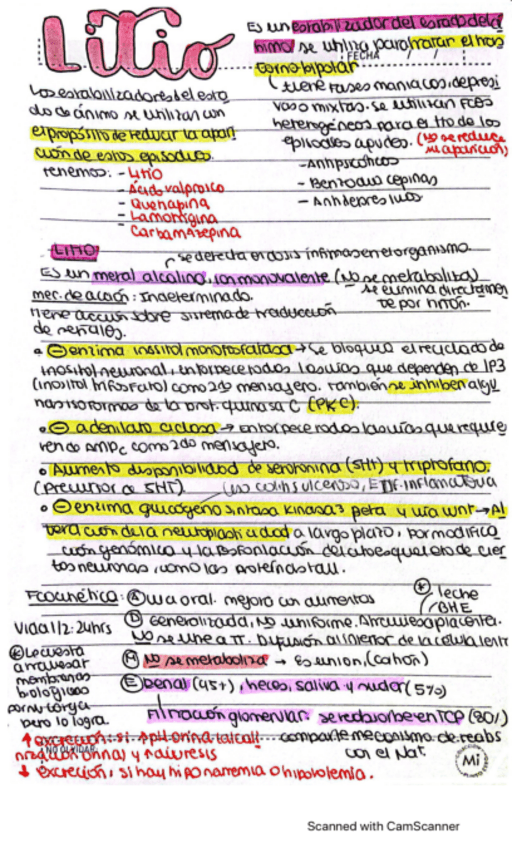 Litio
Es un estabilizador del estado del a
nimo se utiliza para tratar el tras
FECHA
torno bipolar
tiene fases maniacas, depresi
vas o mixtas. Se utilizan FCOS
heterogéneos para el tto de los
episodios agudos. (No se reduce
su aparición)
- Antipsicóticos
- Benzodiacepinas
- Antidepresivos
Los estabilizadores del esta
do de ánimo se utilizan con
el propósito de reducir la apari
ción de estos episodios.
Tenemos: - Litio
- Ácido valproico
- Quetiapina
- Lamotrigina
- Carbamazepina
LITIO
se detecta en dosis ínfimas en el organismo.
Es un metal alcalino, ion monovalente (No se metaboliza)
se elimina directamen
te por riñón.
mec. de acción: Indeterminado.
Tiene acción sobre sistema de traducción
de señales.
⊖ enzima inositol monofosfatasa → Se bloquea el reciclado de
inositol neuronal, entorpece todos las vías que dependen de IP3
(inositol trifosfato) como 2do mensajero. También se inhiben algu
nas isoformas de la prot. quinasa C (PKC).
⊖ adenilato ciclasa → Entorpece todos las vías que requie
ren de AMPc como 2do mensajero.
Aumento disponibilidad de serotonina (5HT) y triptofano.
(Precursor de 5HT)
⊖ enzima glucógeno sintasa kinasa 3 beta y vía wnt → Al
teración de la neuroplasticidad a largo plazo, por modifica
ción genómica y la fosforilación del citoesqueleto de cier
tas neuronas, como las proteínas tau.
Fcocinética: Ⓐ vía oral. mejora con alimentos
leche
BHE
Vida 1/2: 24hrs
Ⓓ Generalizada, NO uniforme. Atraviesa placenta.
No se une a PP. Difusión al interior de la célula lenta
Le cuesta
atravesar
membranas
biológicas
por su carga
pero lo logra.
Ⓜ No se metaboliza → Es un ion, (catión)
Ⓔ Renal (95+), heces, saliva y sudor (5%)
Filtración glomerular. Se reabsorbe en TCP (80%)
comparte mecanismo de reabs
con el Na+.
↑ excreción: si ↑ pH orina (alcali
NO OLVIDAR
nización orina) y natriuresis
↓ excreción, si hay hiponatremia o hipovolemia.
Mi
Scanned with CamScanner